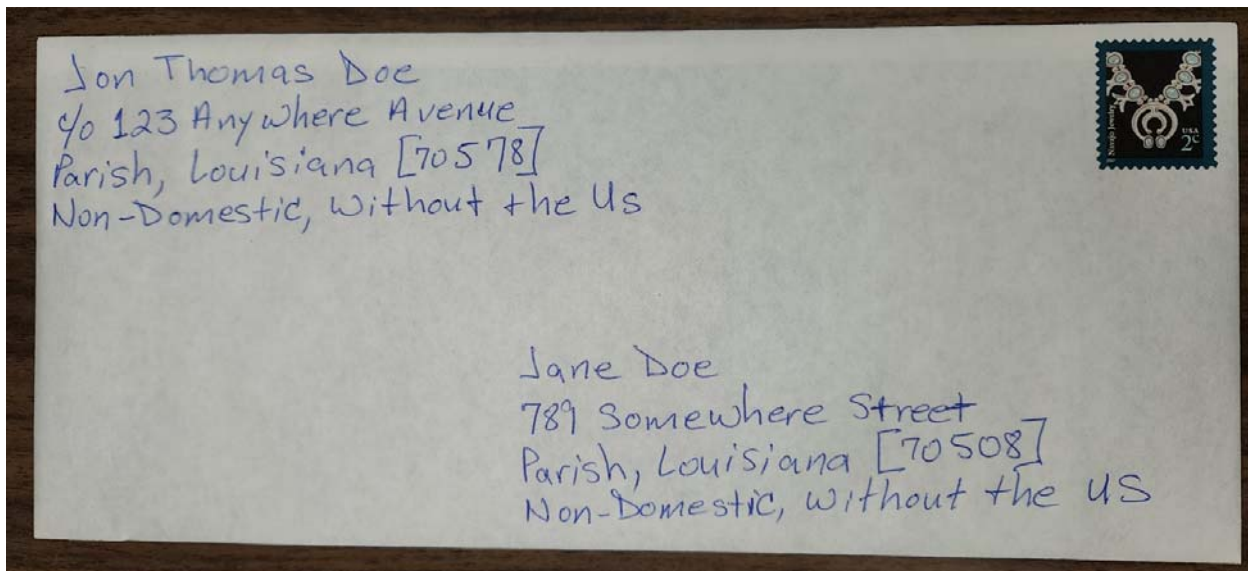 Jon Thomas Doe
c/o 123 Anywhere Avenue
Parish, Louisiana [70578]
Non-Domestic, Without the US
Navajo Jewelry
USA
2c
Jane Doe
789 Somewhere Street
Parish, Louisiana [70508]
Non-Domestic, Without the US